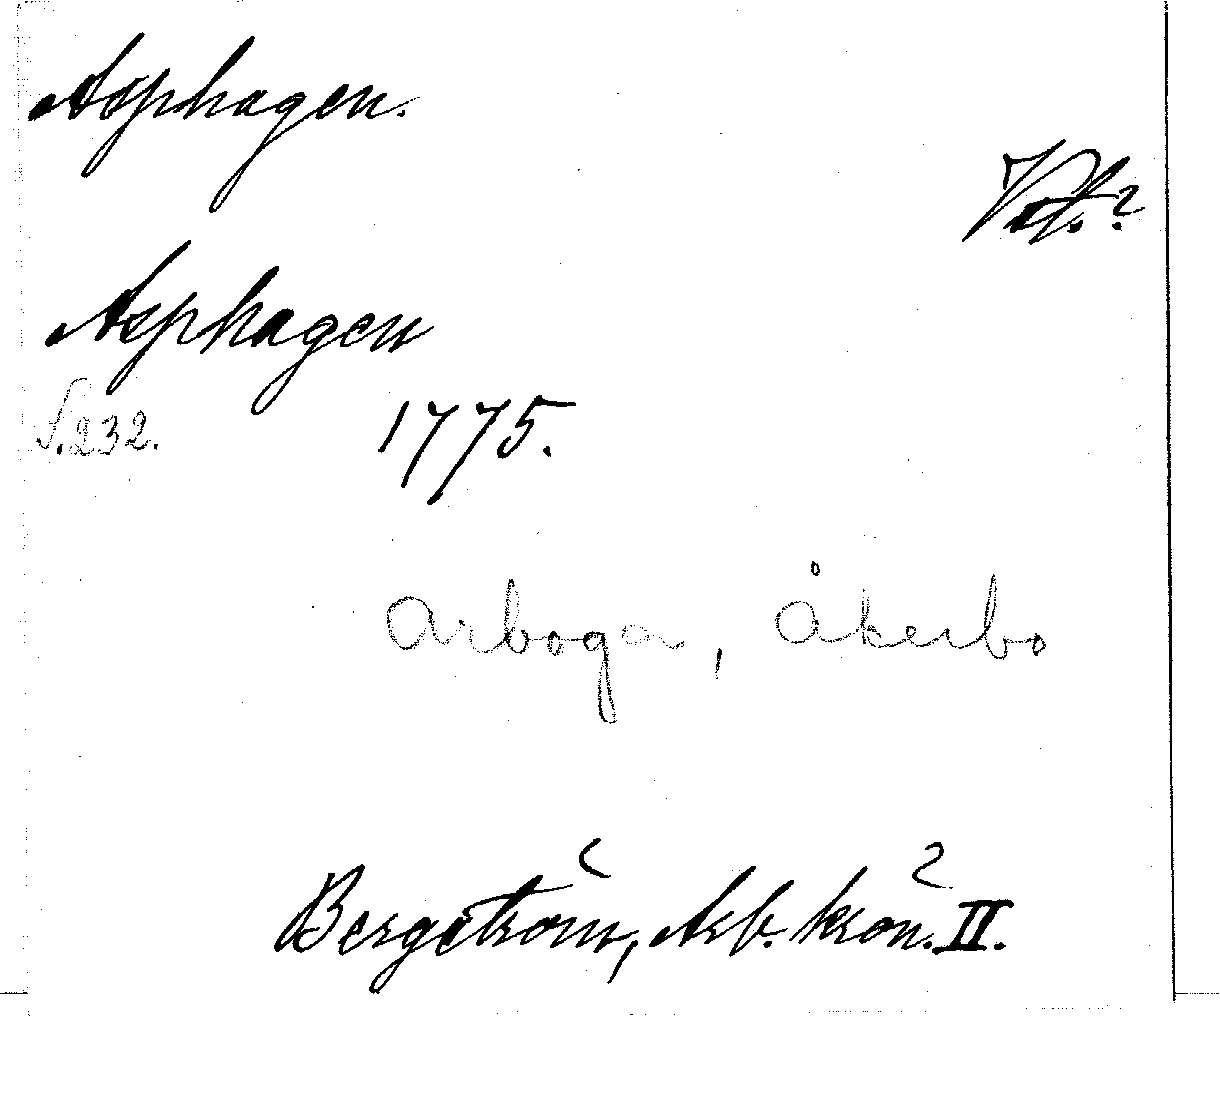 Asphagen.
Asphagen
S. 232. 1775.
Arboga, Åkerbo
Bergström, Arb. krön. II.